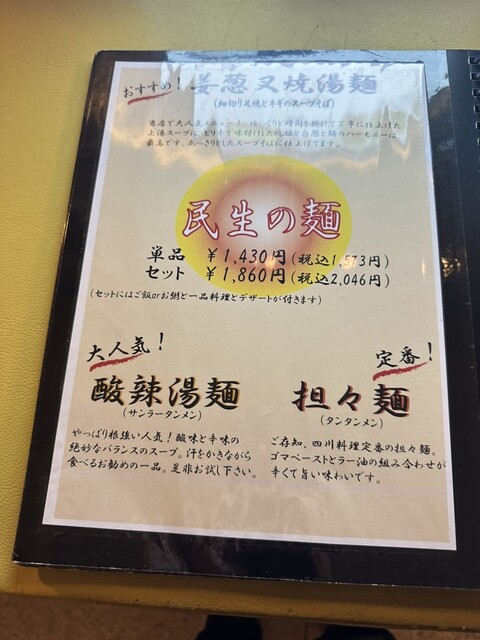 おすすめ！
姜葱叉焼湯麺
（細切り叉焼とネギのスープそば）
当店で大人気メニュー！ゆっくりと時間を掛けて丁寧に仕上げた
上湯スープに、ピリ辛で味付けした叉焼と白葱と麺のハーモニーは
最高です。あっさりとしたスープそばに仕上げてます。
民生の麺
単品 ￥1,430円（税込1,573円）
セット ￥1,860円（税込2,046円）
（セットにはご飯orお粥と一品料理とデザートが付きます）
大人気！
酸辣湯麺
（サンラータンメン）
やっぱり根強い人気！酸味と辛味の
絶妙なバランスのスープ。汗をかきながら
食べるお勧めの一品。是非お試し下さい。
定番！
担々麺
（タンタンメン）
ご存知、四川料理定番の担々麺。
ゴマペーストとラー油の組み合わせが
辛くて旨い味わいです。